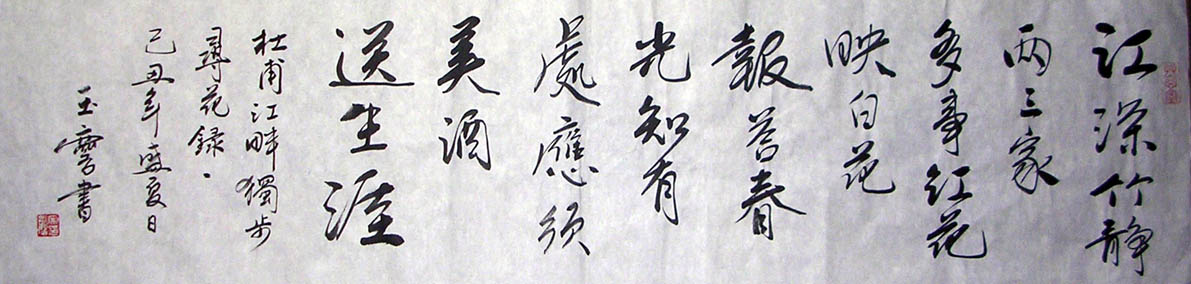 江深竹静
两三家
多事红花
映白花
報答春
光知有
處應须
美酒
送生涯
杜甫江畔獨步
尋花録·
己丑年盛夏日
玉 書